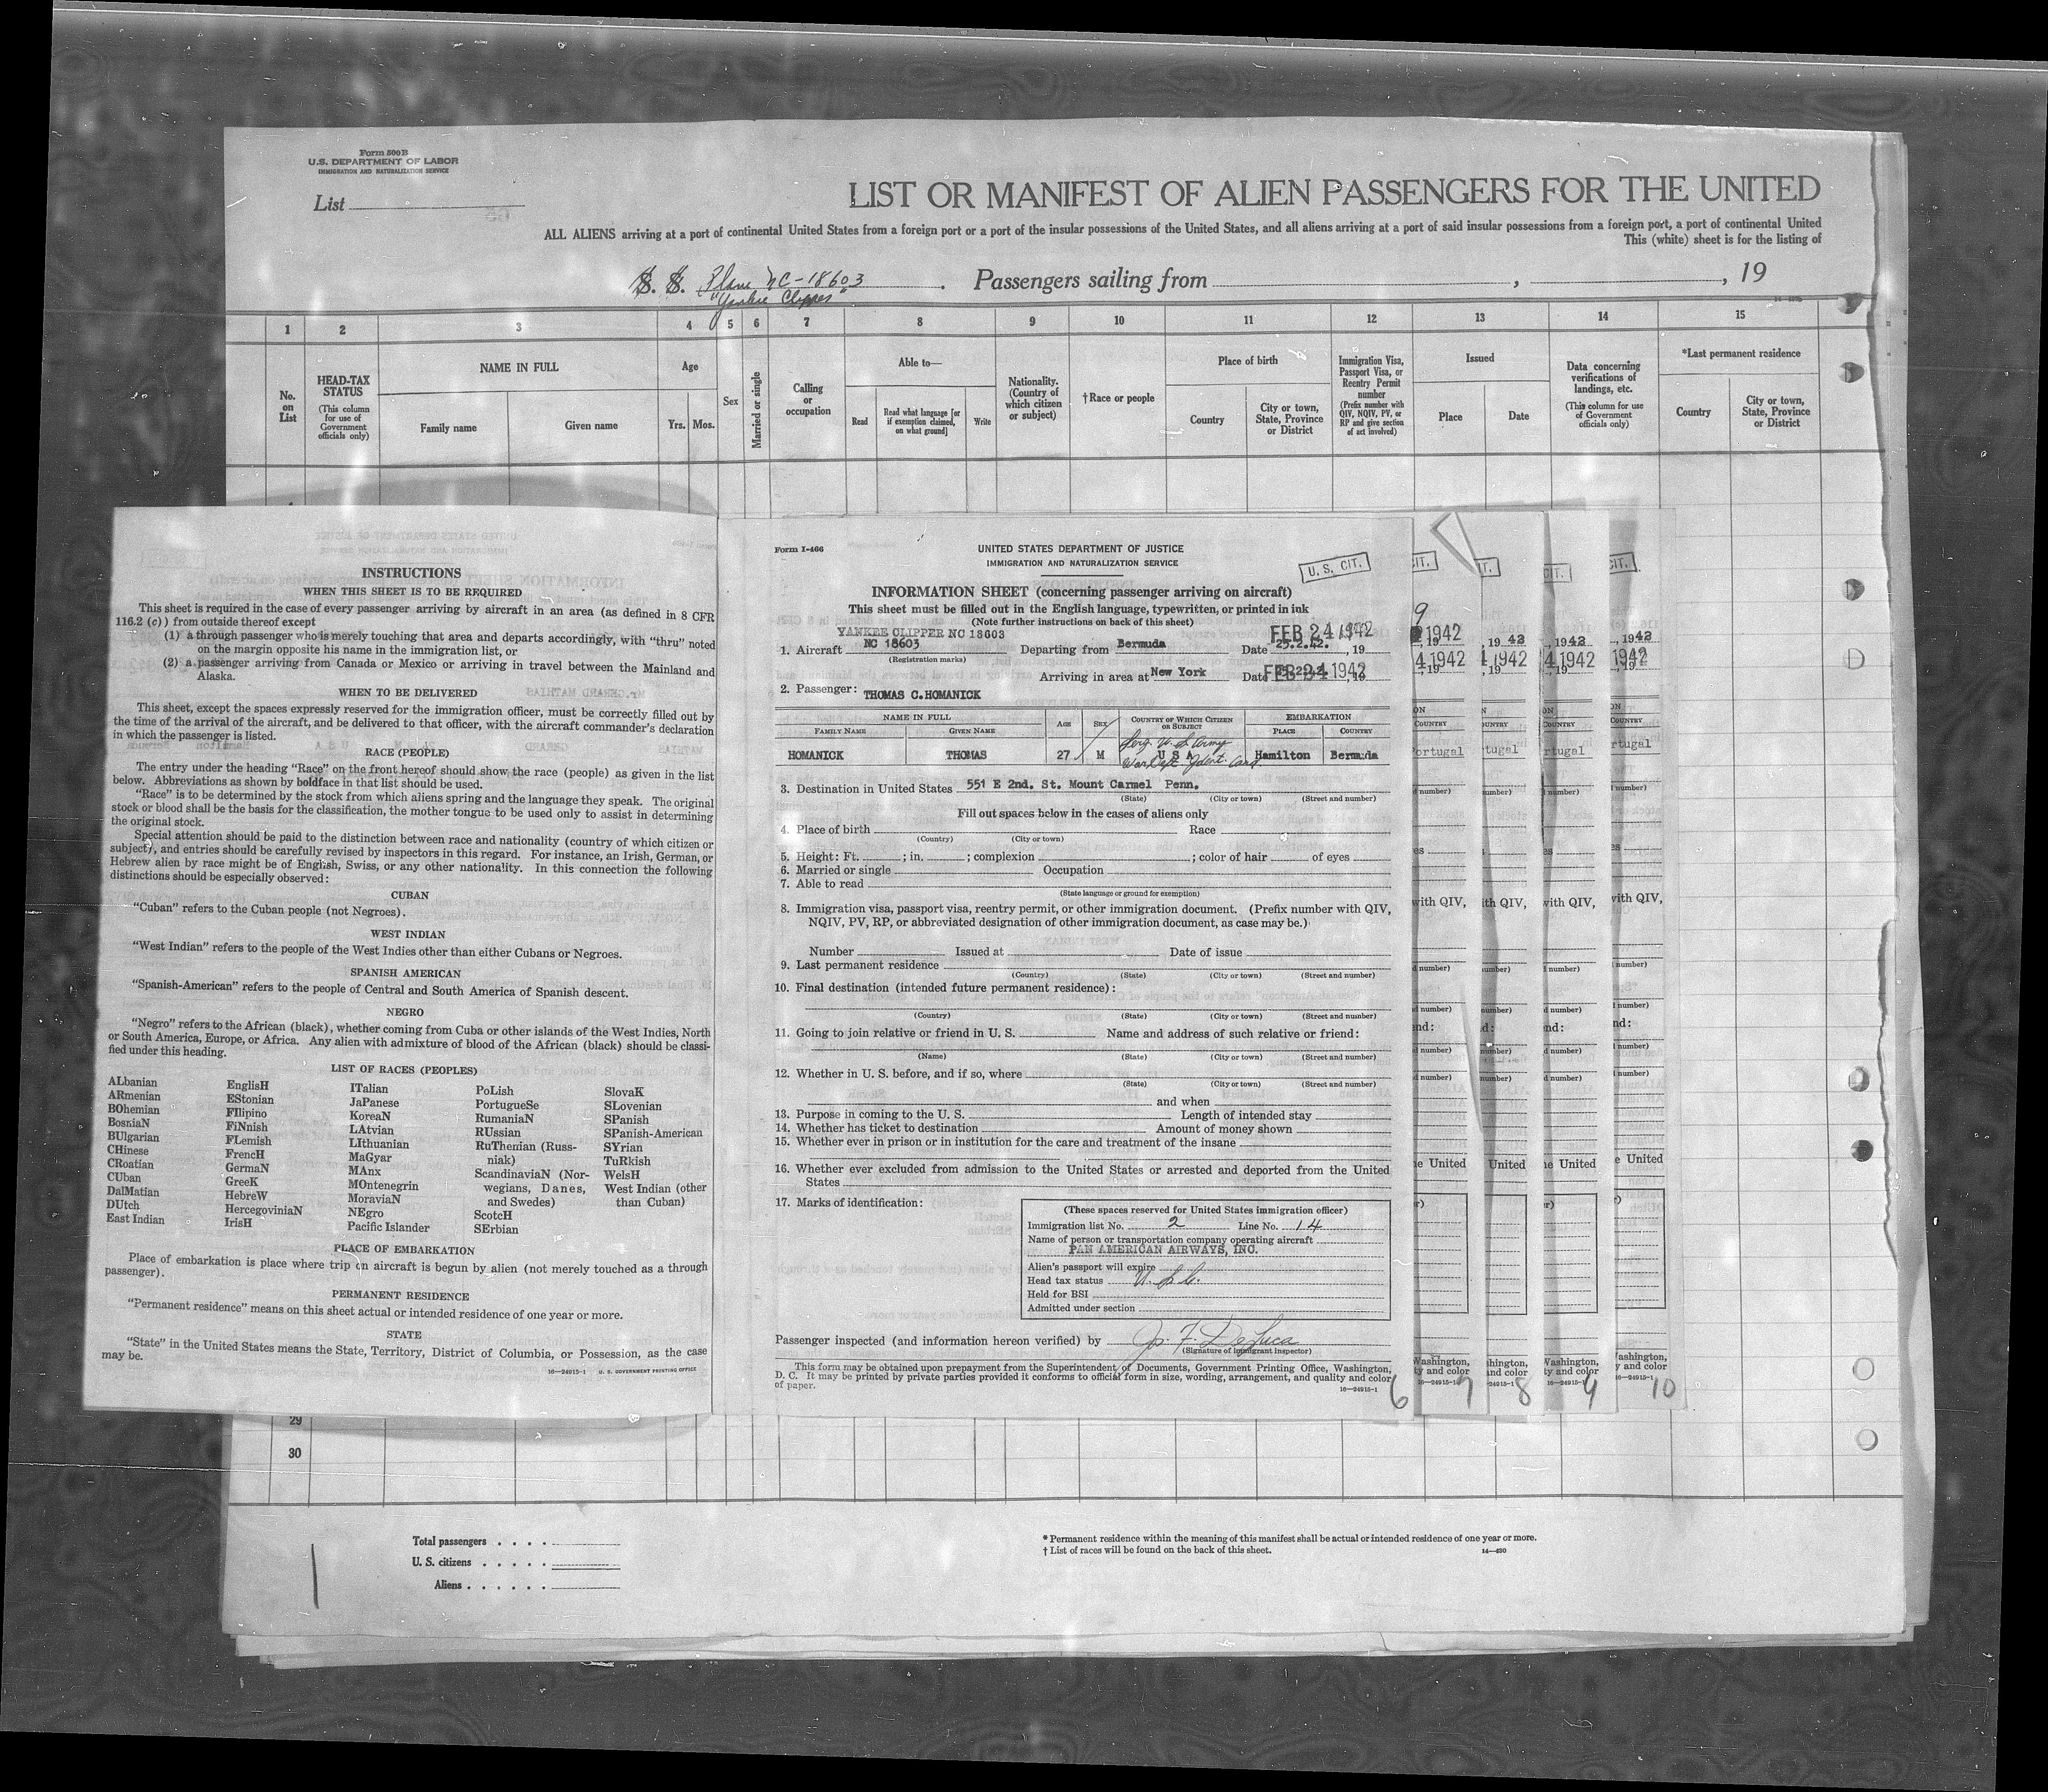 Form 500B
U.S. DEPARTMENT OF LABOR
IMMIGRATION AND NATURALIZATION SERVICE
List
LIST OR MANIFEST OF ALIEN PASSENGERS FOR THE UNITED
ALL ALIENS arriving at a port of continental United States from a foreign port or a port of the insular possessions of the United States, and all aliens arriving at a port of said insular possessions from a foreign port, a port of continental United
This (white) sheet is for the listing of
S. S. Plane NC-18603 . Passengers sailing from , , 19
"Yankee Clipper"
1 2 3 4 5 6 7 8 9 10 11 12 13 14 15
No. on List
HEAD-TAX STATUS
(This column for use of Government officials only)
NAME IN FULL
Family name Given name
Age
Yrs. Mos.
Sex
Married or single
Calling or occupation
Able to—
Read
Read what language [or if exemption claimed, on what ground]
Write
Nationality. (Country of which citizen or subject)
†Race or people
Place of birth
Country
City or town, State, Province or District
Immigration Visa, Passport Visa, or Reentry Permit number
(Prefix number with QIV, NQIV, PV, or RP and give section of act involved)
Issued
Place Date
Data concerning verifications of landings, etc.
(This column for use of Government officials only)
*Last permanent residence
Country
City or town, State, Province or District
INSTRUCTIONS
WHEN THIS SHEET IS TO BE REQUIRED
This sheet is required in the case of every passenger arriving by aircraft in an area (as defined in 8 CFR
116.2 (c)) from outside thereof except
(1) a through passenger who is merely touching that area and departs accordingly, with "thru" noted
on the margin opposite his name in the immigration list, or
(2) a passenger arriving from Canada or Mexico or arriving in travel between the Mainland and
Alaska.
WHEN TO BE DELIVERED
This sheet, except the spaces expressly reserved for the immigration officer, must be correctly filled out by
the time of the arrival of the aircraft, and be delivered to that officer, with the aircraft commander's declaration
in which the passenger is listed.
RACE (PEOPLE)
The entry under the heading "Race" on the front hereof should show the race (people) as given in the list
below. Abbreviations as shown by boldface in that list should be used.
"Race" is to be determined by the stock from which aliens spring and the language they speak. The original
stock or blood shall be the basis for the classification, the mother tongue to be used only to assist in determining
the original stock.
Special attention should be paid to the distinction between race and nationality (country of which citizen or
subject), and entries should be carefully revised by inspectors in this regard. For instance, an Irish, German, or
Hebrew alien by race might be of English, Swiss, or any other nationality. In this connection the following
distinctions should be especially observed:
CUBAN
"Cuban" refers to the Cuban people (not Negroes).
WEST INDIAN
"West Indian" refers to the people of the West Indies other than either Cubans or Negroes.
SPANISH AMERICAN
"Spanish-American" refers to the people of Central and South America of Spanish descent.
NEGRO
"Negro" refers to the African (black), whether coming from Cuba or other islands of the West Indies, North
or South America, Europe, or Africa. Any alien with admixture of blood of the African (black) should be classi-
fied under this heading.
LIST OF RACES (PEOPLES)
ALbanian
ARmenian
BOhemian
BosniaN
BUlgarian
CHinese
CRoatian
CUban
DalMatian
DUtch
East Indian
EnglisH
EStonian
FIlipino
FiNnish
FLemish
FrencH
GermaN
GreeK
HebreW
HercegoviniaN
IrisH
ITalian
JaPanese
KoreaN
LAtvian
LIthuanian
MaGyar
MAnx
MOntenegrin
MoraviaN
NEgro
Pacific Islander
PoLish
PortugueSe
RumaniaN
RUssian
RuThenian (Russ-
niak)
ScandinaviaN (Nor-
wegians, Danes,
and Swedes)
ScotcH
SErbian
SlovaK
SLovenian
SPanish
SPanish-American
SYrian
TuRkish
WelsH
West Indian (other
than Cuban)
PLACE OF EMBARKATION
Place of embarkation is place where trip on aircraft is begun by alien (not merely touched as a through
passenger).
PERMANENT RESIDENCE
"Permanent residence" means on this sheet actual or intended residence of one year or more.
STATE
"State" in the United States means the State, Territory, District of Columbia, or Possession, as the case
may be.
16—24915-1 U. S. GOVERNMENT PRINTING OFFICE
Form I-466
UNITED STATES DEPARTMENT OF JUSTICE
IMMIGRATION AND NATURALIZATION SERVICE
U. S. CIT.
INFORMATION SHEET (concerning passenger arriving on aircraft)
This sheet must be filled out in the English language, typewritten, or printed in ink
(Note further instructions on back of this sheet)
YANKEE CLIPPER NC 18603 FEB 24 1942
1. Aircraft NC 18603 Departing from Bermuda Date 23.2.42. , 19
(Registration marks)
Arriving in area at New York Date FEB 24 1942
2. Passenger: THOMAS C.HOMANICK
NAME IN FULL
FAMILY NAME GIVEN NAME
AGE SEX
COUNTRY OF WHICH CITIZEN OR SUBJECT
EMBARKATION
PLACE COUNTRY
Serg. U.S. Army
HOMANICK THOMAS 27 M U S A Hamilton Bermuda
War Dept. Ident. Card
3. Destination in United States 551 E 2nd. St. Mount Carmel Penn.
(State) (City or town) (Street and number)
Fill out spaces below in the cases of aliens only
4. Place of birth Race
(Country) (City or town)
5. Height: Ft. ; in. ; complexion ; color of hair of eyes
6. Married or single Occupation
7. Able to read
(State language or ground for exemption)
8. Immigration visa, passport visa, reentry permit, or other immigration document. (Prefix number with QIV,
NQIV, PV, RP, or abbreviated designation of other immigration document, as case may be.)
Number Issued at Date of issue
9. Last permanent residence
(Country) (State) (City or town) (Street and number)
10. Final destination (intended future permanent residence):
(Country) (State) (City or town) (Street and number)
11. Going to join relative or friend in U. S. Name and address of such relative or friend:
(Name) (State) (City or town) (Street and number)
12. Whether in U. S. before, and if so, where
(State) (City or town) (Street and number)
and when
13. Purpose in coming to the U. S. Length of intended stay
14. Whether has ticket to destination Amount of money shown
15. Whether ever in prison or in institution for the care and treatment of the insane
16. Whether ever excluded from admission to the United States or arrested and deported from the United
States
17. Marks of identification:
(These spaces reserved for United States immigration officer)
Immigration list No. 2 Line No. 14
Name of person or transportation company operating aircraft
PAN AMERICAN AIRWAYS, INC.
Alien's passport will expire
Head tax status U.S.C.
Held for BSI
Admitted under section
Passenger inspected (and information hereon verified) by Jo. F. DeLuca
(Signature of immigrant inspector)
This form may be obtained upon prepayment from the Superintendent of Documents, Government Printing Office, Washington,
D. C. It may be printed by private parties provided it conforms to official form in size, wording, arrangement, and quality and color
of paper.
16—24915-1
6 7 8 9 10
29
30
Total passengers . . . .
U. S. citizens . . . . .
Aliens . . . . . .
* Permanent residence within the meaning of this manifest shall be actual or intended residence of one year or more.
† List of races will be found on the back of this sheet.
14—430